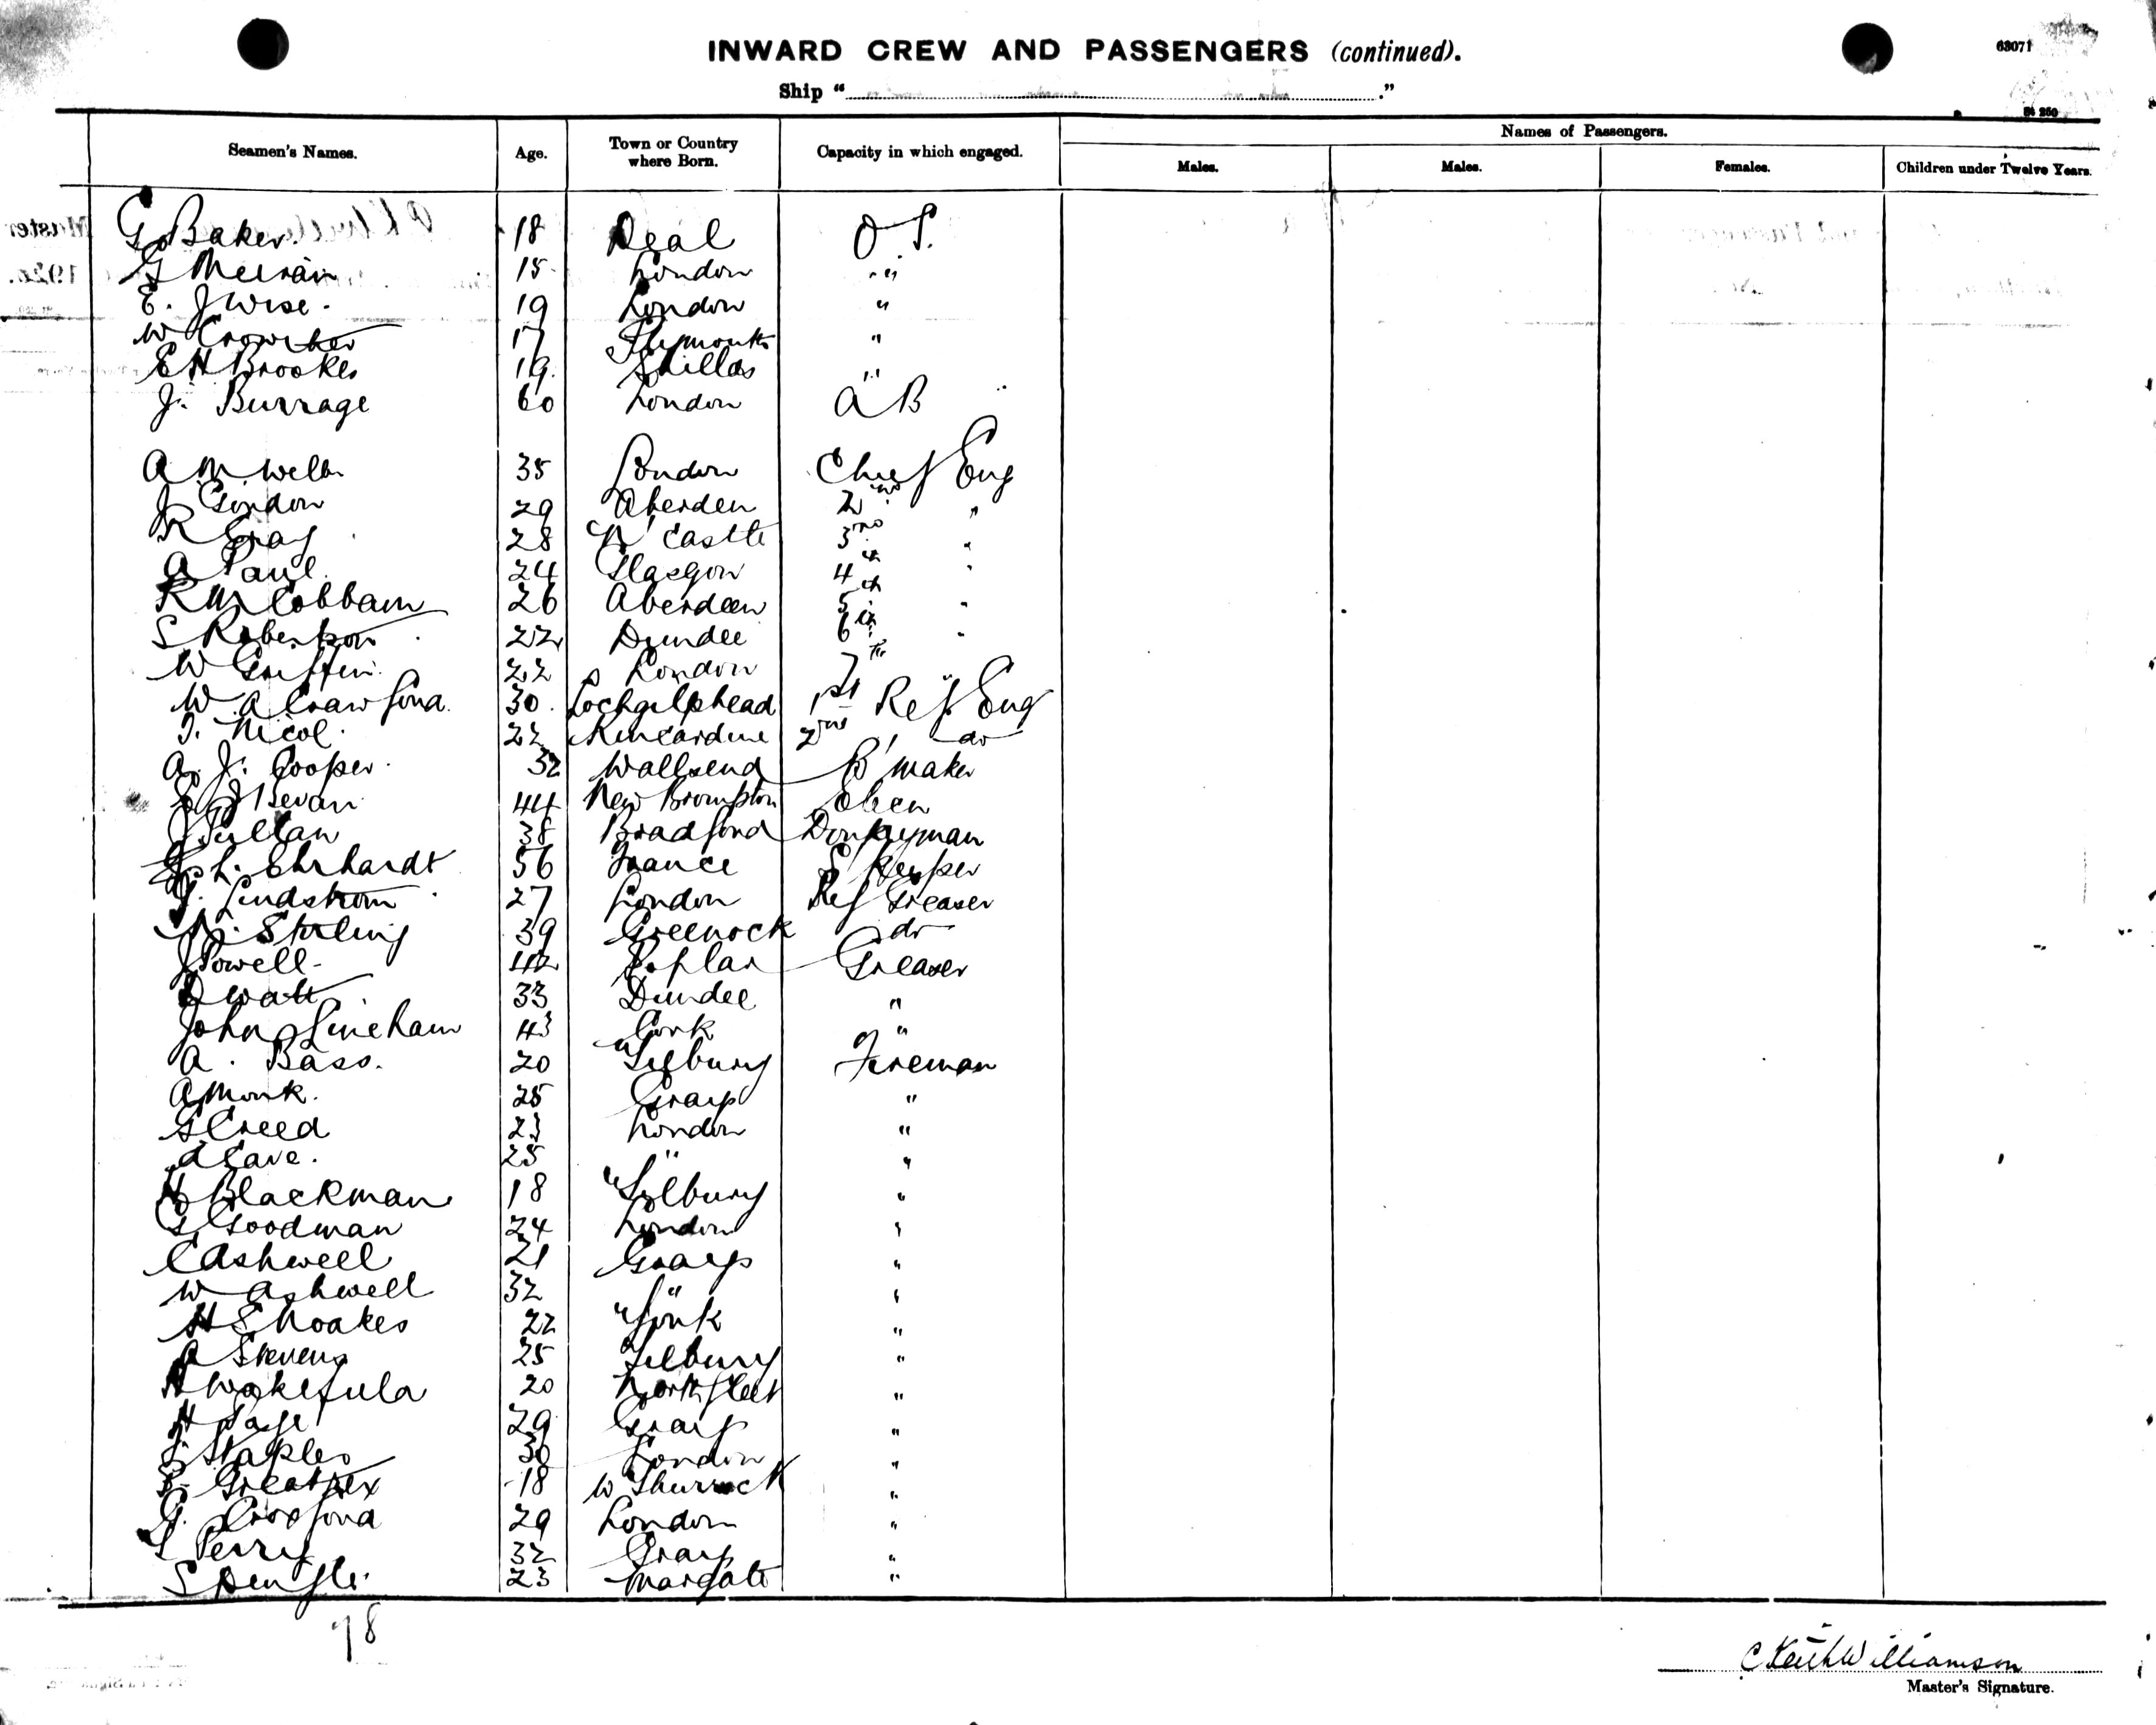 63071
INWARD CREW AND PASSENGERS (continued).
Ship " ."
Seamen's Names. Age. Town or Country where Born. Capacity in which engaged. Names of Passengers.
Males. Males. Females. Children under Twelve Years.
G Baker. 18 Deal O S.
G 15 London "
E. J Wise. 19 London "
W Crowther 17 Plymouth "
E H Brookes 19. Shillds "
J. Burrage 60 London A B
A M Wells 35 London Chief Eng
J Gordon 29 Aberden 2nd "
R Gray 28 N'Castle 3rd "
A Paul. 24 Glasgow 4th "
R M Cobbam 26 Aberdeen 5th "
S Robertson 22 Dundee 6th "
W Griffin. 22 London 7th
W A Crawford. 30. Lochgilphead 1st Ref Eng
J. Nicol. 22 Kincardine 2nd do
A. J. Cooper. 32 Wallsend B'maker
J Bevan 44 New Brompton Elecn
J Pullan 38 Bradford Donkeyman
L. Ehrhardt 56 France S'Keeper
J. Lindstrom 27 London Ref Greaser
Sterling 39 Greenock do
J Powell. 42 Poplar Greaser
D Watt 33 Dundee "
John Lineham 43 Cork "
A. Bass. 20 Tilbury Fireman
A Monk. 25 Grays "
G Creed 23 London "
A Cave. 25 " "
H Blackman 18 Tilbury "
G Goodman 24 London "
C Ashwell 21 Grays "
W Ashwell 32 " "
H S Noakes 22 York "
A Stevens 25 Tilbury "
H Wakefula 20 Northfleet "
H Page 29 Grays "
S Staples 30 London "
Greatrex 18 W Thurrock "
G. Crosford 29 London "
S Perry 32 Grays "
S 23 Margate "
78
C Keith Williamson
Master's Signature.